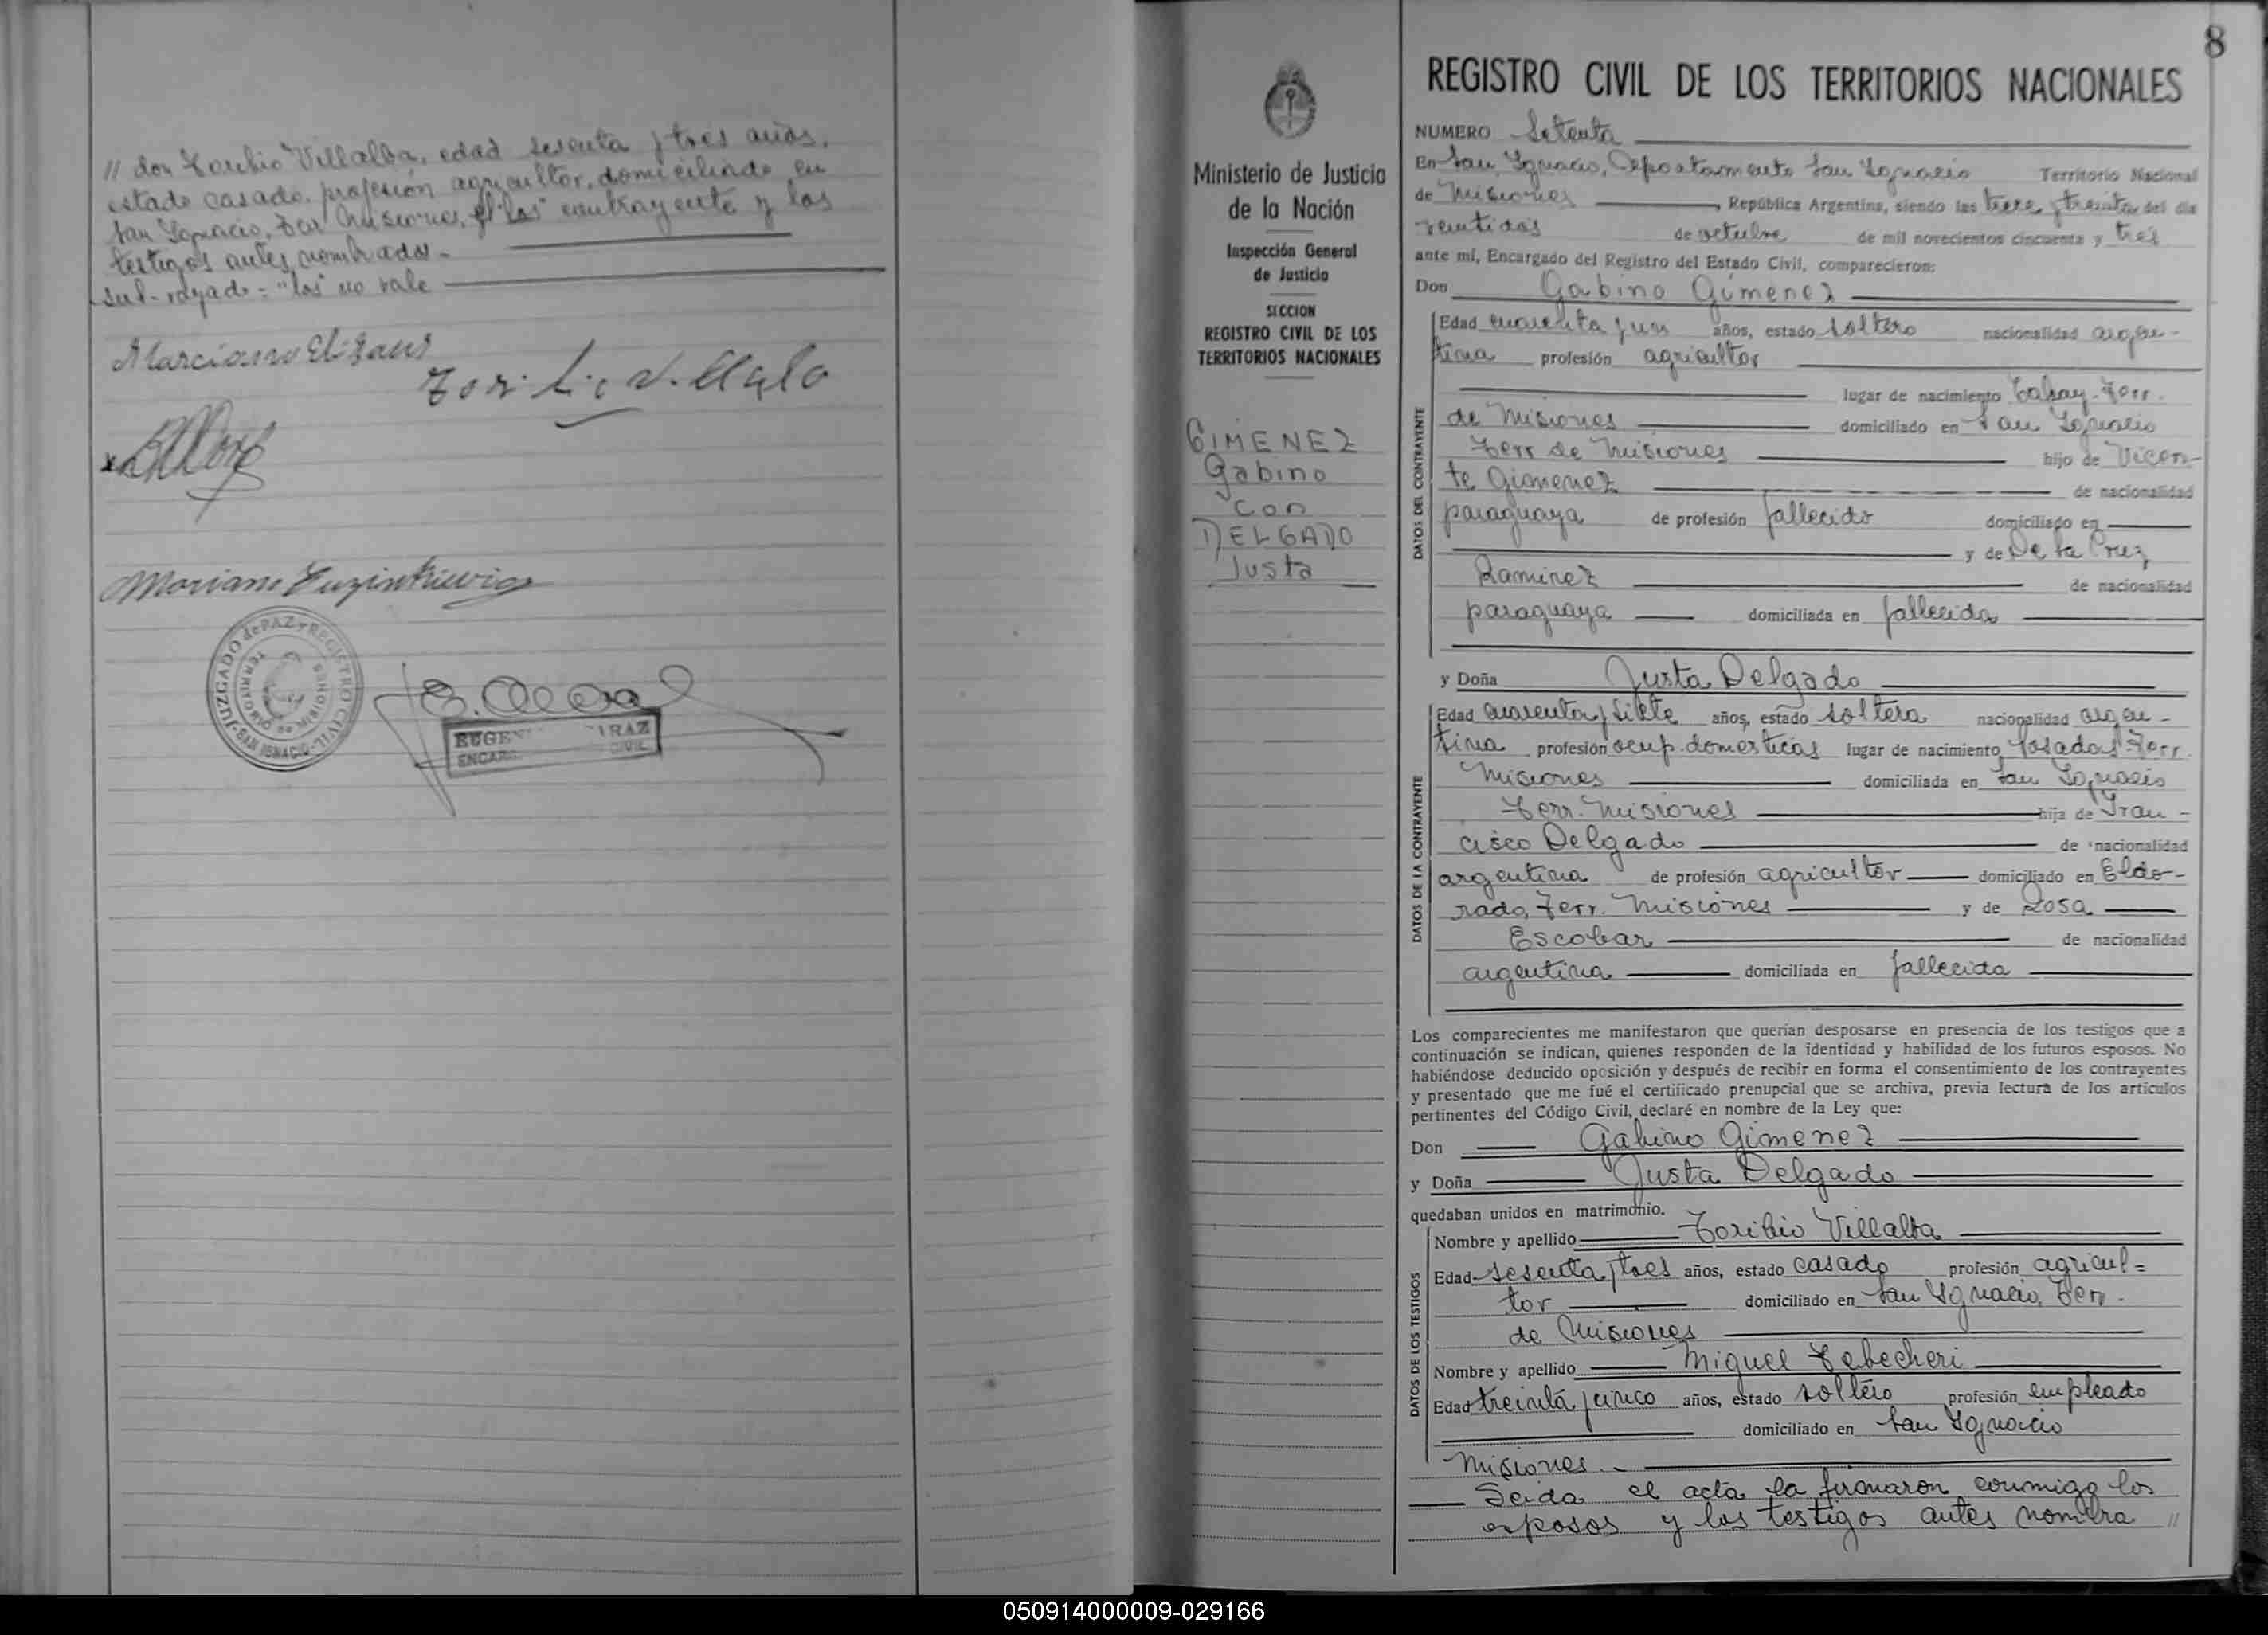 // don Toribio Villalba, edad sesenta y tres años,
estado casado, profesión agricultor, domiciliado en
San Ignacio, Ter Misiones, el "los" contrayente y los
testigos antes nombrados.-
Sub-rayado: "los" no vale
Marciano
Toribio Villalba
Mariano
JUZGADO de PAZ y REGISTRO CIVIL
SAN IGNACIO
EUGEN IRAZ
ENCARG CIVIL
8
Ministerio de Justicia
de la Nación
Inspección General
de Justicia
SECCION
REGISTRO CIVIL DE LOS
TERRITORIOS NACIONALES
GIMENEZ
Gabino
con
DELGADO
Justa
REGISTRO CIVIL DE LOS TERRITORIOS NACIONALES
NUMERO Setenta
En San Ignacio, Departamento San Ignacio Territorio Nacional
de Misiones, República Argentina, siendo las trece y treinta del día
veintidos de octubre de mil novecientos cincuenta y tres
ante mí, Encargado del Registro del Estado Civil, comparecieron:
Don Gabino Gimenez
DATOS DEL CONTRAYENTE
Edad cuarenta y un años, estado soltero nacionalidad argen-
tina profesión agricultor
lugar de nacimiento Cahay-Terr.
de Misiones domiciliado en San Ignacio
Terr de Misiones hijo de Vicen-
te Gimenez de nacionalidad
paraguaya de profesión fallecido domiciliado en
y de De la Cruz
Ramirez de nacionalidad
paraguaya domiciliada en fallecida
y Doña Justa Delgado
DATOS DE LA CONTRAYENTE
Edad cuarenta y siete años, estado soltera nacionalidad argen-
tina profesión ocup. domesticas lugar de nacimiento Posadas-Terr.
Misiones domiciliada en San Ignacio
Terr. Misiones hija de Fran-
cisco Delgado de nacionalidad
argentina de profesión agricultor domiciliado en Eldo-
rado, Terr. Misiones y de Rosa
Escobar de nacionalidad
argentina domiciliada en fallecida
Los comparecientes me manifestaron que querían desposarse en presencia de los testigos que a
continuación se indican, quienes responden de la identidad y habilidad de los futuros esposos. No
habiéndose deducido oposición y después de recibir en forma el consentimiento de los contrayentes
y presentado que me fué el certificado prenupcial que se archiva, previa lectura de los artículos
pertinentes del Código Civil, declaré en nombre de la Ley que:
Don Gabino Gimenez
y Doña Justa Delgado
quedaban unidos en matrimonio.
DATOS DE LOS TESTIGOS
Nombre y apellido Toribio Villalba
Edad sesenta y tres años, estado casado profesión agricul=
tor domiciliado en San Ignacio, Terr.
de Misiones
Nombre y apellido Miguel Tebecheri
Edad treinta y cinco años, estado soltero profesión empleado
domiciliado en San Ignacio
Misiones.-
Leida el acta la firmaron conmigo los
esposos y los testigos antes nombra //
050914000009-029166